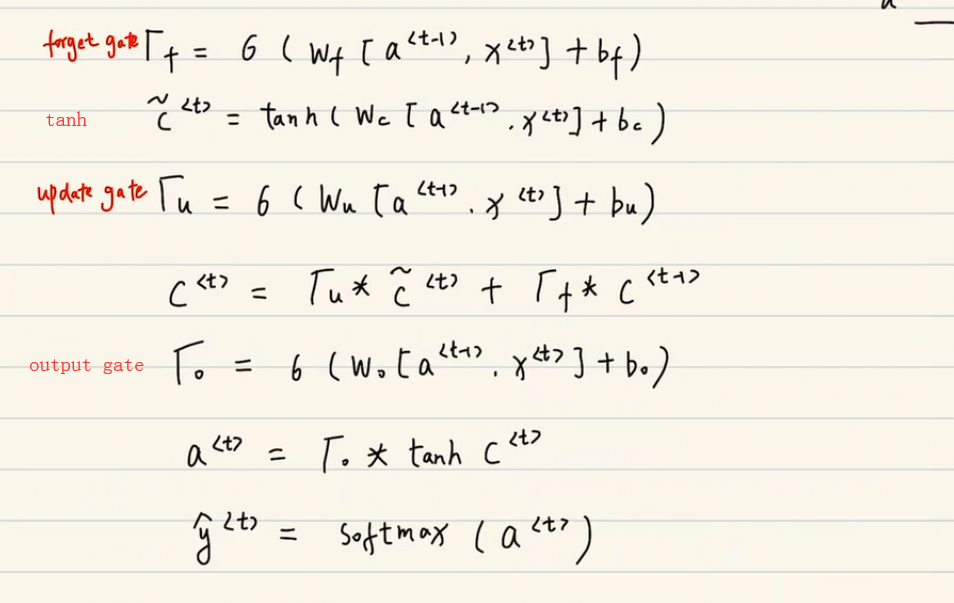 forget gate Γf = σ ( Wf [ a<t-1>, x<t> ] + bf )
tanh c̃<t> = tanh ( Wc [ a<t-1>, x<t> ] + bc )
update gate Γu = σ ( Wu [ a<t-1>, x<t> ] + bu )
c<t> = Γu * c̃<t> + Γf * c<t-1>
output gate Γo = σ ( Wo [ a<t-1>, x<t> ] + bo )
a<t> = Γo * tanh c<t>
ŷ<t> = softmax ( a<t> )